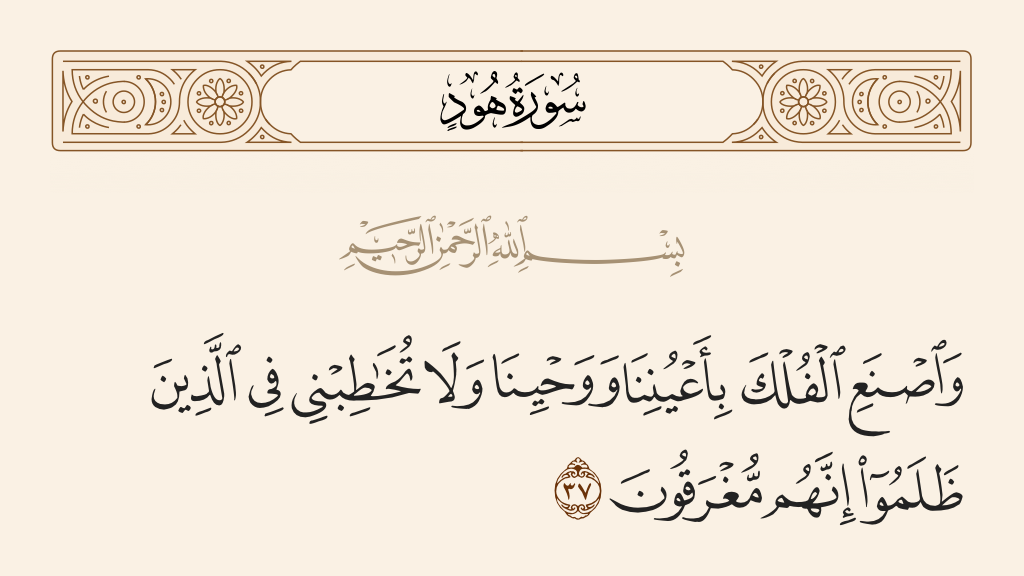 سُورَةُ هُودٍ
بِسْمِ ٱللَّهِ ٱلرَّحْمَٰنِ ٱلرَّحِيمِ
وَٱصْنَعِ ٱلْفُلْكَ بِأَعْيُنِنَا وَوَحْيِنَا وَلَا تُخَٰطِبْنِى فِى ٱلَّذِينَ
ظَلَمُوٓا۟ إِنَّهُم مُّغْرَقُونَ ٣٧